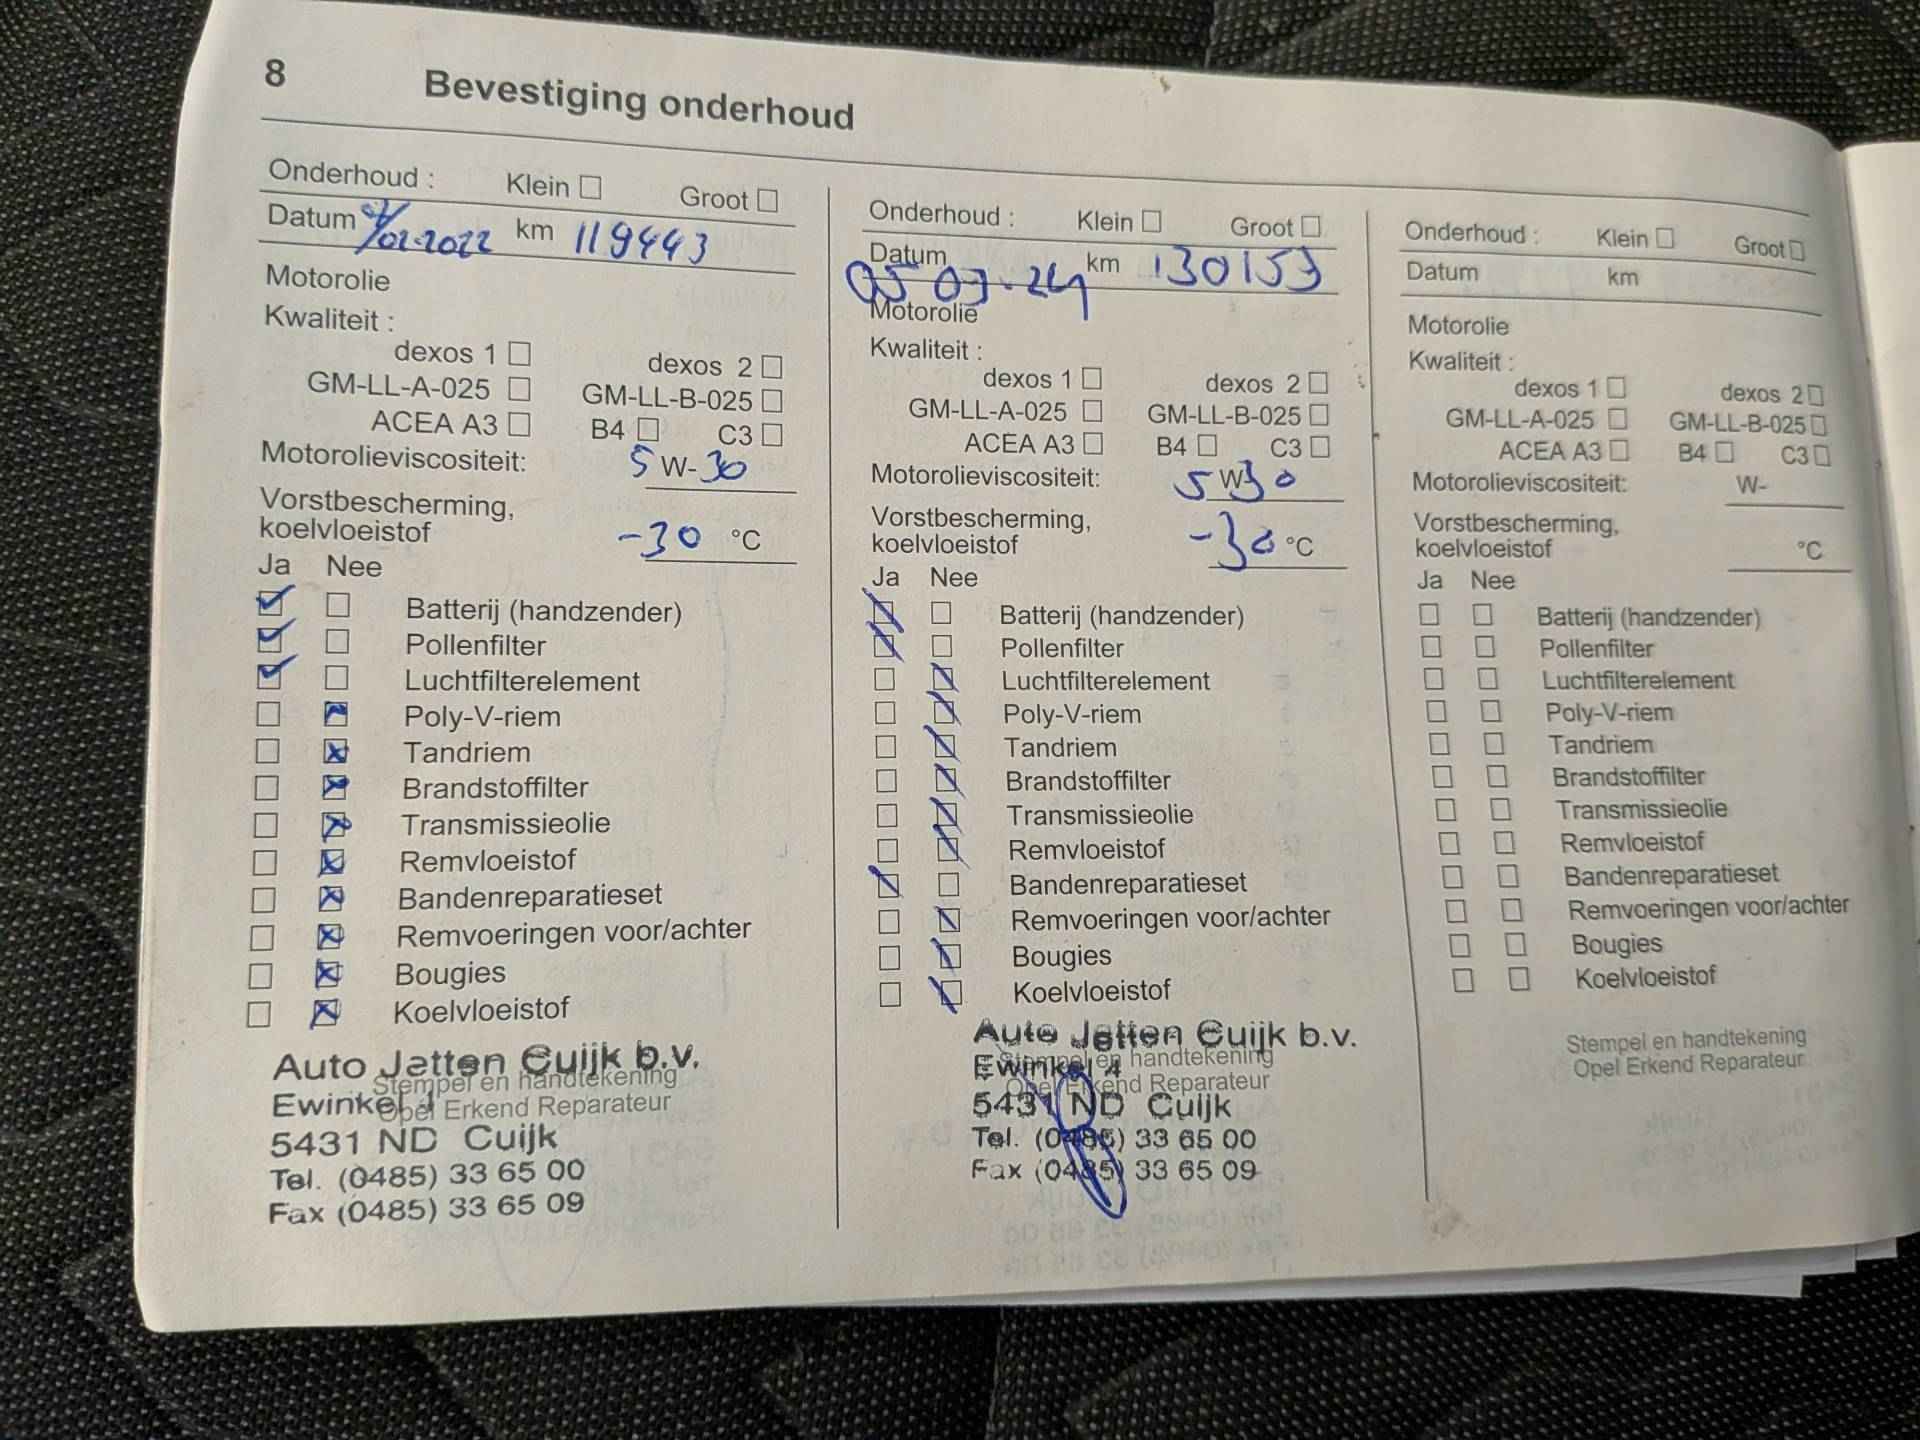 8 Bevestiging onderhoud
Onderhoud : Klein Groot
Datum /02-2022 km 119443
Motorolie
Kwaliteit :
dexos 1 dexos 2
GM-LL-A-025 GM-LL-B-025
ACEA A3 B4 C3
Motorolieviscositeit: 5 W-30
Vorstbescherming,
koelvloeistof -30 °C
Ja Nee
Batterij (handzender)
Pollenfilter
Luchtfilterelement
Poly-V-riem
Tandriem
Brandstoffilter
Transmissieolie
Remvloeistof
Bandenreparatieset
Remvoeringen voor/achter
Bougies
Koelvloeistof
Auto Jetten Cuijk b.v.
Stempel en handtekening
Ewinkel
Opel Erkend Reparateur
5431 ND Cuijk
Tel. (0485) 33 65 00
Fax (0485) 33 65 09
Onderhoud : Klein Groot
Datum km 130153
05 03-24
Motorolie
Kwaliteit :
dexos 1 dexos 2
GM-LL-A-025 GM-LL-B-025
ACEA A3 B4 C3
Motorolieviscositeit: 5 W 30
Vorstbescherming,
koelvloeistof -30 °C
Ja Nee
Batterij (handzender)
Pollenfilter
Luchtfilterelement
Poly-V-riem
Tandriem
Brandstoffilter
Transmissieolie
Remvloeistof
Bandenreparatieset
Remvoeringen voor/achter
Bougies
Koelvloeistof
Auto Jetten Cuijk b.v.
Stempel en handtekening
Ewinkel 4
Opel Erkend Reparateur
5431 ND Cuijk
Tel. (0485) 33 65 00
Fax (0485) 33 65 09
Onderhoud : Klein Groot
Datum km
Motorolie
Kwaliteit :
dexos 1 dexos 2
GM-LL-A-025 GM-LL-B-025
ACEA A3 B4 C3
Motorolieviscositeit: W-
Vorstbescherming,
koelvloeistof °C
Ja Nee
Batterij (handzender)
Pollenfilter
Luchtfilterelement
Poly-V-riem
Tandriem
Brandstoffilter
Transmissieolie
Remvloeistof
Bandenreparatieset
Remvoeringen voor/achter
Bougies
Koelvloeistof
Stempel en handtekening
Opel Erkend Reparateur